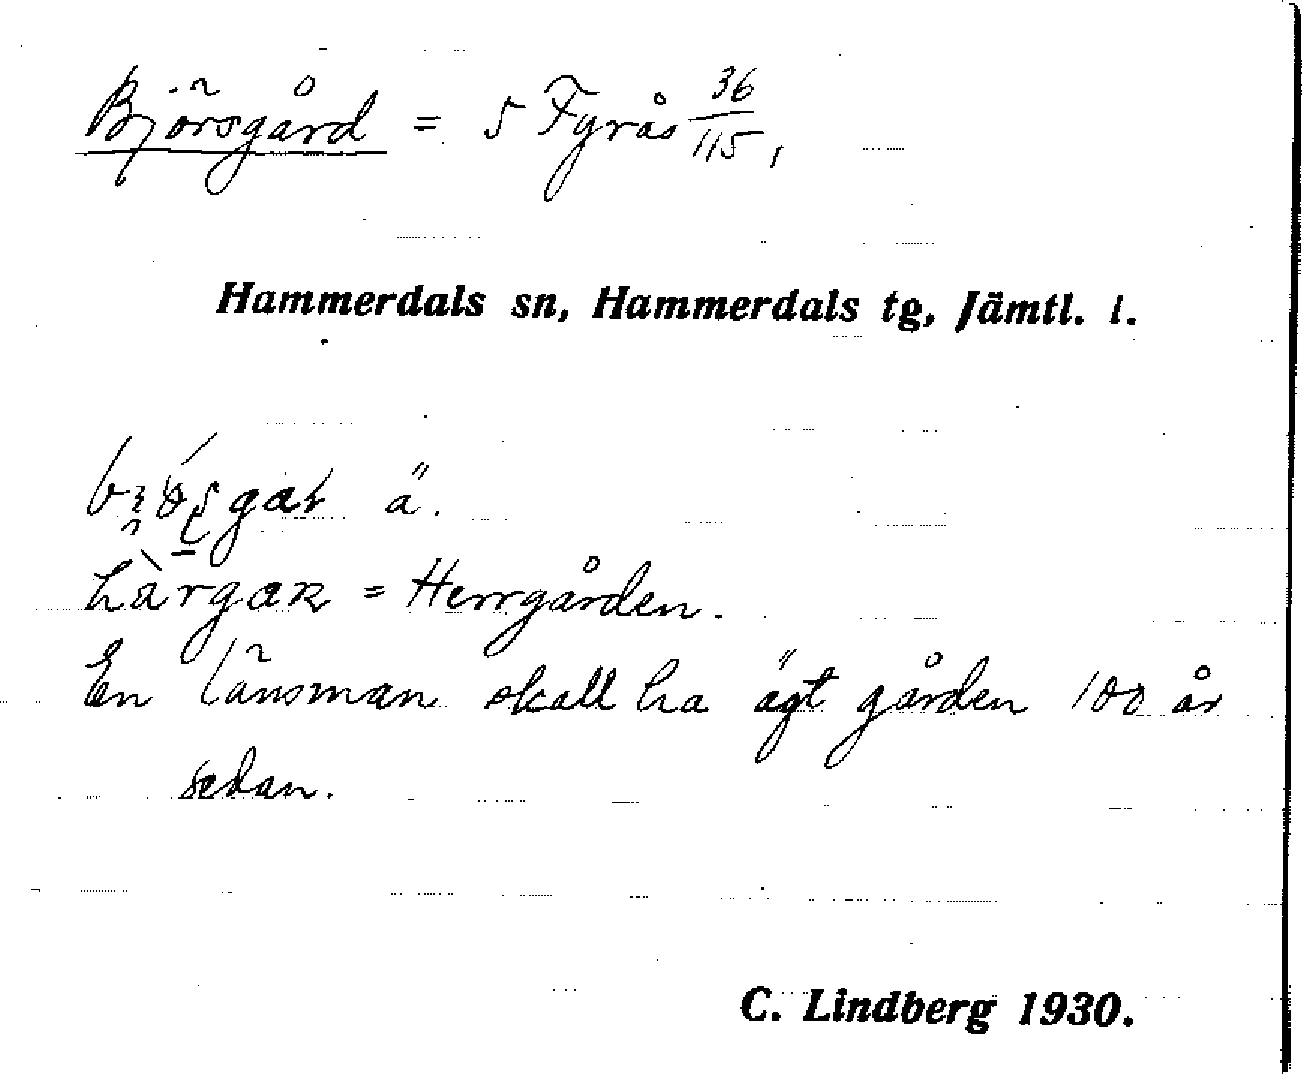 Björsgård = 5 Fyrås 36/115,
Hammerdals sn, Hammerdals tg, Jämtl. l.
ä.
= Herrgården.
En länsman skall ha ägt gården 100 år
sedan.
C. Lindberg 1930.